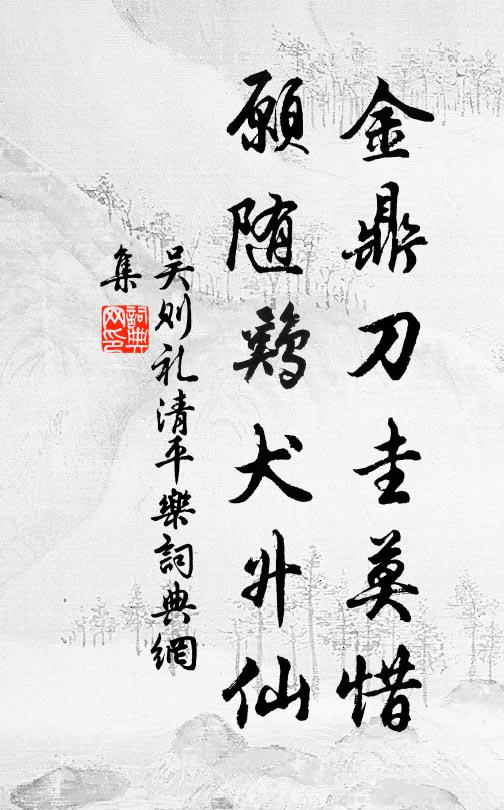 金鼎刀圭莫惜
願随鷄犬升仙
吴则礼清平樂詞典網
集
詞典
网印